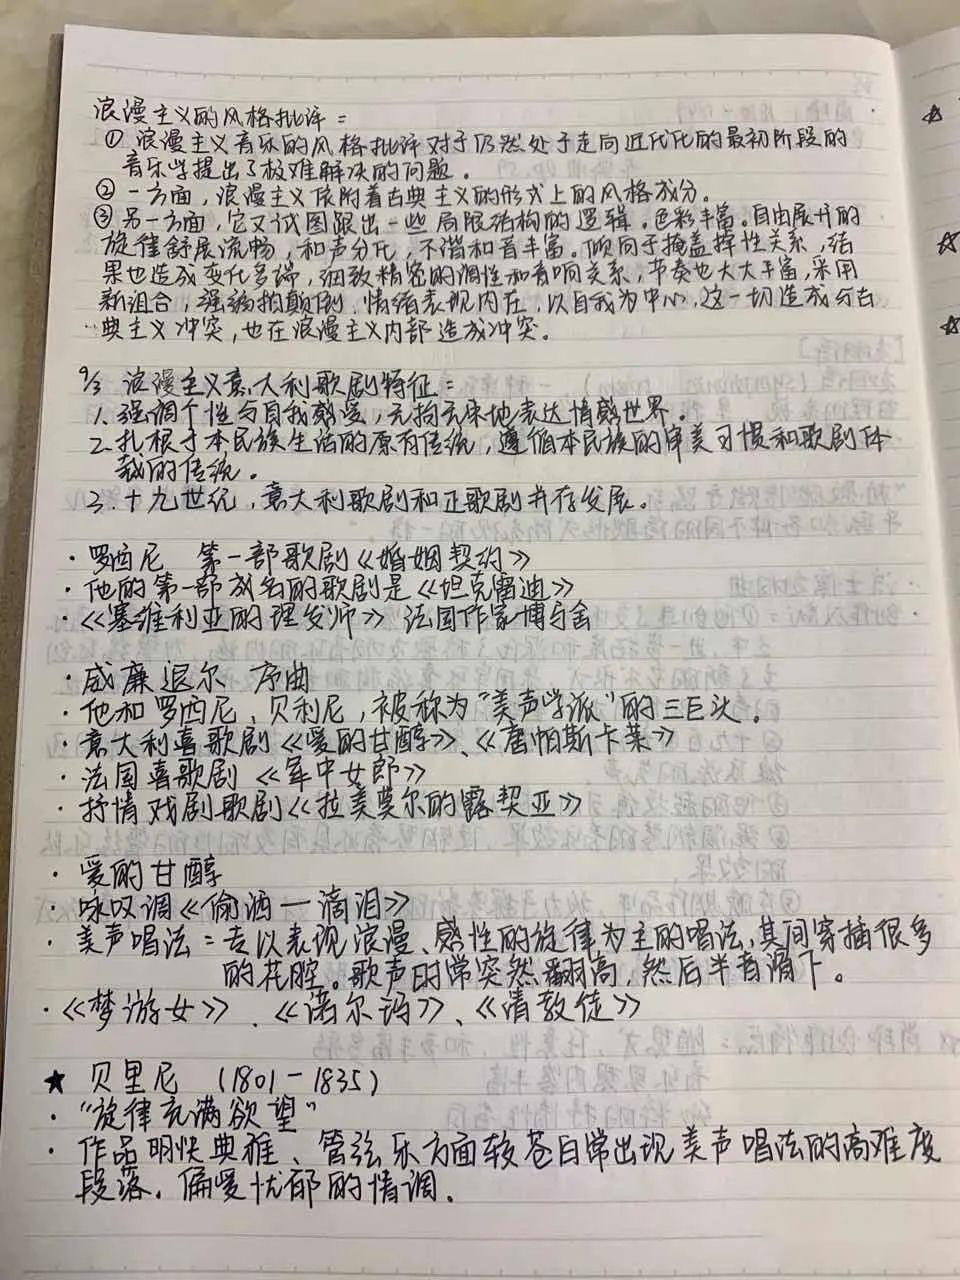 浪漫主义的风格批评：
① 浪漫主义音乐的风格批评对于仍然处于走向近代化的最初阶段的
音乐学提出了极难解决的问题。
② 一方面，浪漫主义依附着古典主义的形式上的风格成分。
③ 另一方面，它又试图跟出一些局限结构的逻辑。色彩丰富。自由展开的
旋律舒展流畅，和声分化，不谐和音丰富。倾向于掩盖择性关系，结
果也造成变化多端，细致精密的调性和音响关系，节奏也大大丰富，采用
新组合，强弱拍颠倒，情绪表现内在，以自我为中心，这一切造成与古
典主义冲突，也在浪漫主义内部造成冲突。
9/3 浪漫主义意大利歌剧特征：
1. 强调个性与自我感受，无拘无束地表达情感世界。
2. 扎根于本民族生活的原有传统，遵循本民族的审美习惯和歌剧体
裁的传统。
3. 十九世纪，意大利歌剧和正歌剧并存发展。
· 罗西尼 第一部歌剧《婚姻契约》
· 他的第一部成名的歌剧是《坦克雷迪》
· 《塞维利亚的理发师》 法国作家博马舍
· 威廉退尔 序曲
· 他和罗西尼、贝利尼，被称为“美声学派”的三巨头。
· 意大利喜歌剧《爱的甘醇》、《唐帕斯卡莱》
· 法国喜歌剧《军中女郎》
· 抒情戏剧歌剧《拉美莫尔的露契亚》
· 爱的甘醇
· 咏叹调《偷洒一滴泪》
· 美声唱法：去以表现浪漫、感性的旋律为主的唱法，其间穿插很多
的花腔。歌声时常突然翻高，然后半音滑下。
· 《梦游女》、《诺尔玛》、《清教徒》
★ 贝里尼 （1801－1835）
· “旋律充满欲望”
· 作品明快典雅、管弦乐方面较苍白常出现美声唱法的高难度
段落，偏爱忧郁的情调。